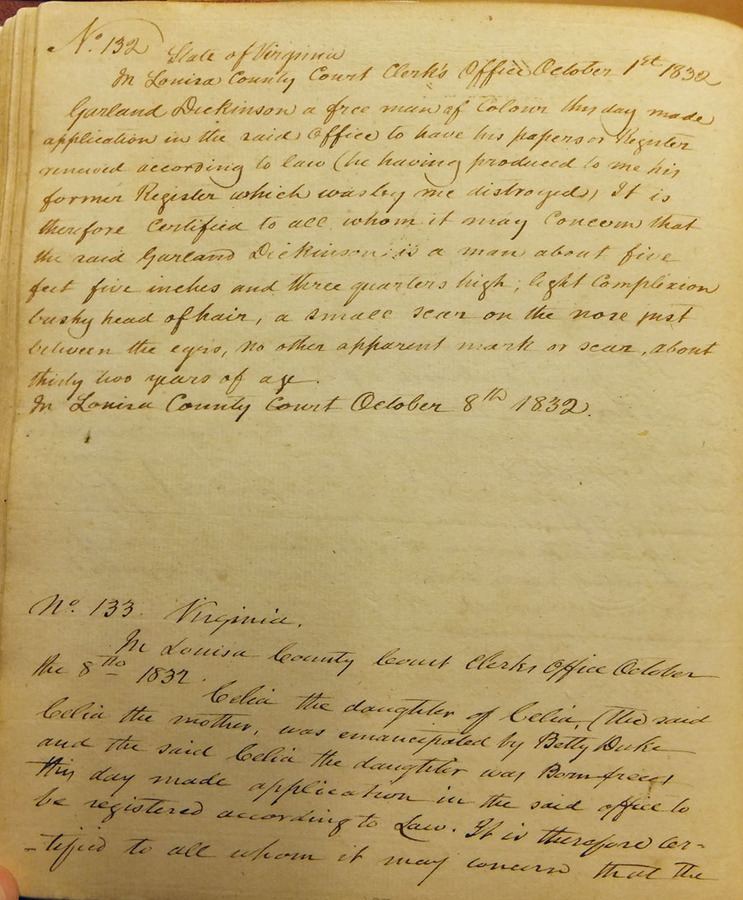 No. 132 State of Virginia
In Louisa County Court Clerk's Office October 1st 1832
Garland Dickinson a free man of Colour this day made
application in the said Office to have his papers or Register
renewed according to law (he having produced to me his
former Register which was by me distroyed) It is
therefore Certified to all whom it may Concern that
the said Garland Dickinson is a man about five
feet five inches and three quarters high; light Complexion
bushy head of hair, a small scar on the nose just
between the eyes, no other apparent mark or scar, about
thirty two years of age.
In Louisa County Court October 8th 1832.
No. 133 Virginia.
In Louisa County Court Clerks Office October
the 8th 1832.
Celia the daughter of Celia, (the said
Celia the mother, was emancipated by Betty Duke
and the said Celia the daughter was Born free)
this day made application in the said office to
be registered according to Law. It is therefore Cer-
-tified to all whom it may concern that the